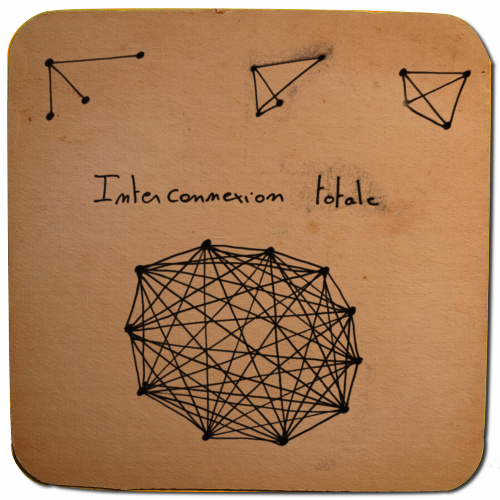 Interconnexion totale